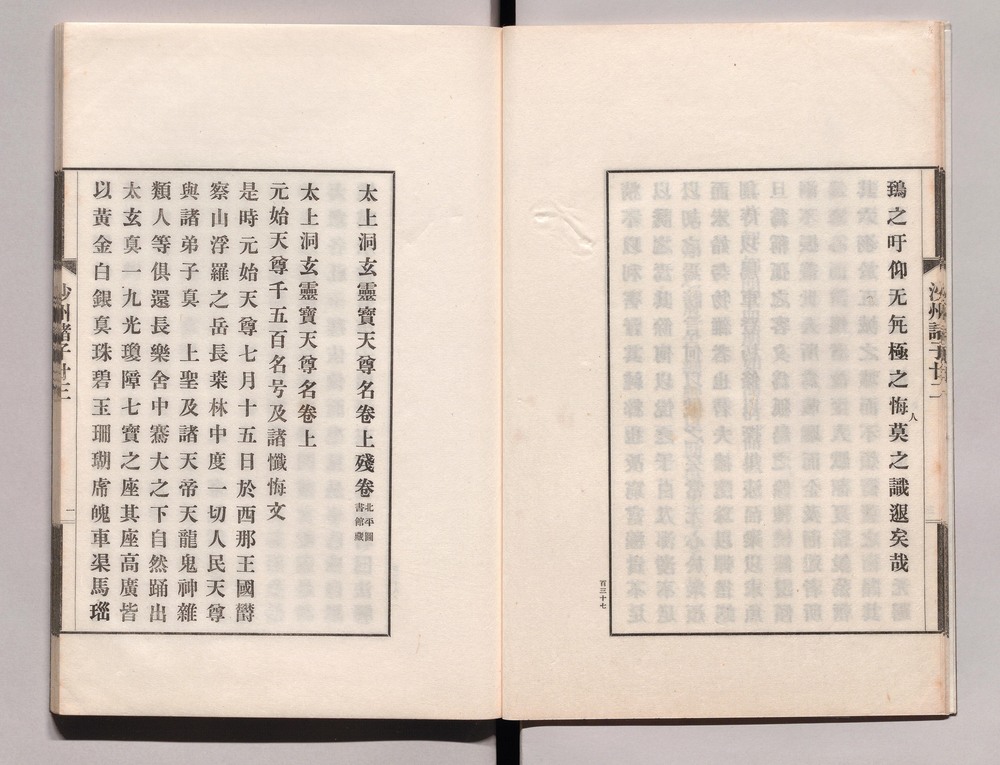 鵶之吁仰无旡極之悔莫之識遐矣哉
人
百三十七
沙州諸子廿二
太上洞玄靈寶天尊名卷上殘卷北平圖書館藏
太上洞玄靈寶天尊名卷上
元始天尊千五百名号及諸懺悔文
是時元始天尊七月十五日於西那王國欝
察山浮羅之岳長桒林中度一切人民天尊
與諸弟子真 上聖及諸天帝天龍鬼神雜
類人等俱還長樂舍中騫大之下自然踊出
太玄真一九光瓊障七寶之座其座高廣皆
以黃金白銀真珠碧玉珊瑚虎魄車渠馬瑙
沙州諸子廿三
一